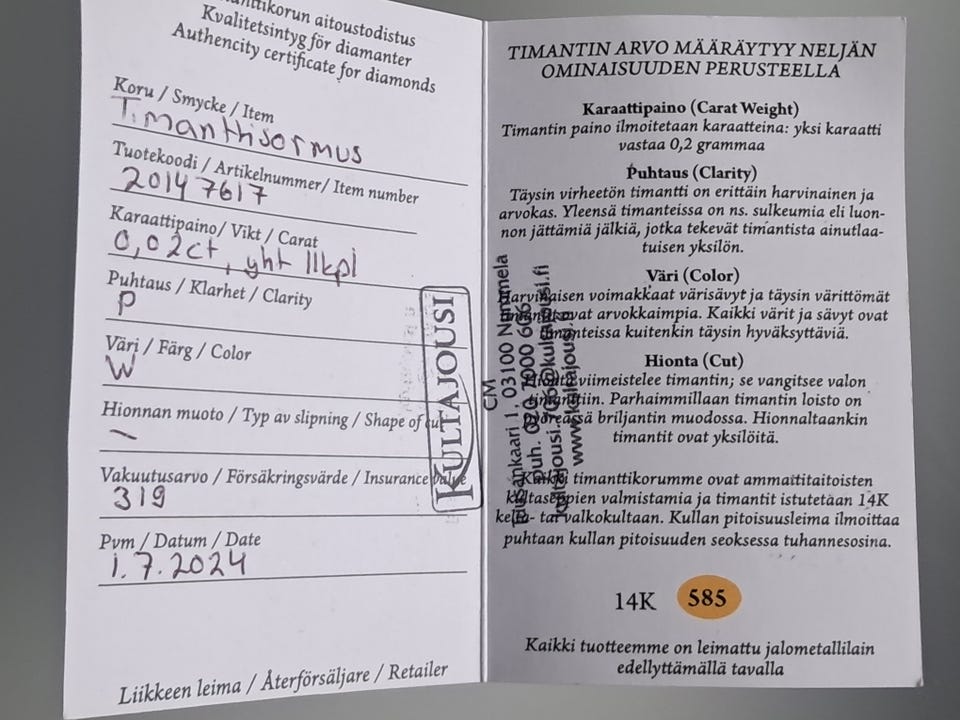 anttikorun aitoustodistus
Kvalitetsintyg för diamanter
Authencity certificate for diamonds
Koru / Smycke / Item
Timanttisormus
Tuotekoodi / Artikelnummer/ Item number
20147617
Karaattipaino/ Vikt / Carat
0,02ct, yht 11kpl
Puhtaus / Klarhet / Clarity
P
Väri / Färg / Color
W
Hionnan muoto / Typ av slipning / Shape of cut
–
Vakuutusarvo / Försäkringsvärde / Insurance value
319
Pvm / Datum / Date
1.7.2024
Liikkeen leima / Återförsäljare / Retailer
KULTAJOUSI
CM
Tuusankaari 1, 03100 Nummela
puh. 020 7000 606
www.kultajousi.fi
TIMANTIN ARVO MÄÄRÄYTYY NELJÄN
OMINAISUUDEN PERUSTEELLA
Karaattipaino (Carat Weight)
Timantin paino ilmoitetaan karaatteina: yksi karaatti
vastaa 0,2 grammaa
Puhtaus (Clarity)
Täysin virheetön timantti on erittäin harvinainen ja
arvokas. Yleensä timanteissa on ns. sulkeumia eli luon-
non jättämiä jälkiä, jotka tekevät timantista ainutlaa-
tuisen yksilön.
Väri (Color)
Harvinaisen voimakkaat värisävyt ja täysin värittömät
timantit ovat arvokkaimpia. Kaikki värit ja sävyt ovat
timanteissa kuitenkin täysin hyväksyttäviä.
Hionta (Cut)
Hionta viimeistelee timantin; se vangitsee valon
timanttiin. Parhaimmillaan timantin loisto on
pyöreässä briljantin muodossa. Hionnaltaankin
timantit ovat yksilöitä.
Kaikki timanttikorumme ovat ammattitaitoisten
kultaseppien valmistamia ja timantit istutetaan 14K
kelta- tai valkokultaan. Kullan pitoisuusleima ilmoittaa
puhtaan kullan pitoisuuden seoksessa tuhannesosina.
14K 585
Kaikki tuotteemme on leimattu jalometallilain
edellyttämällä tavalla